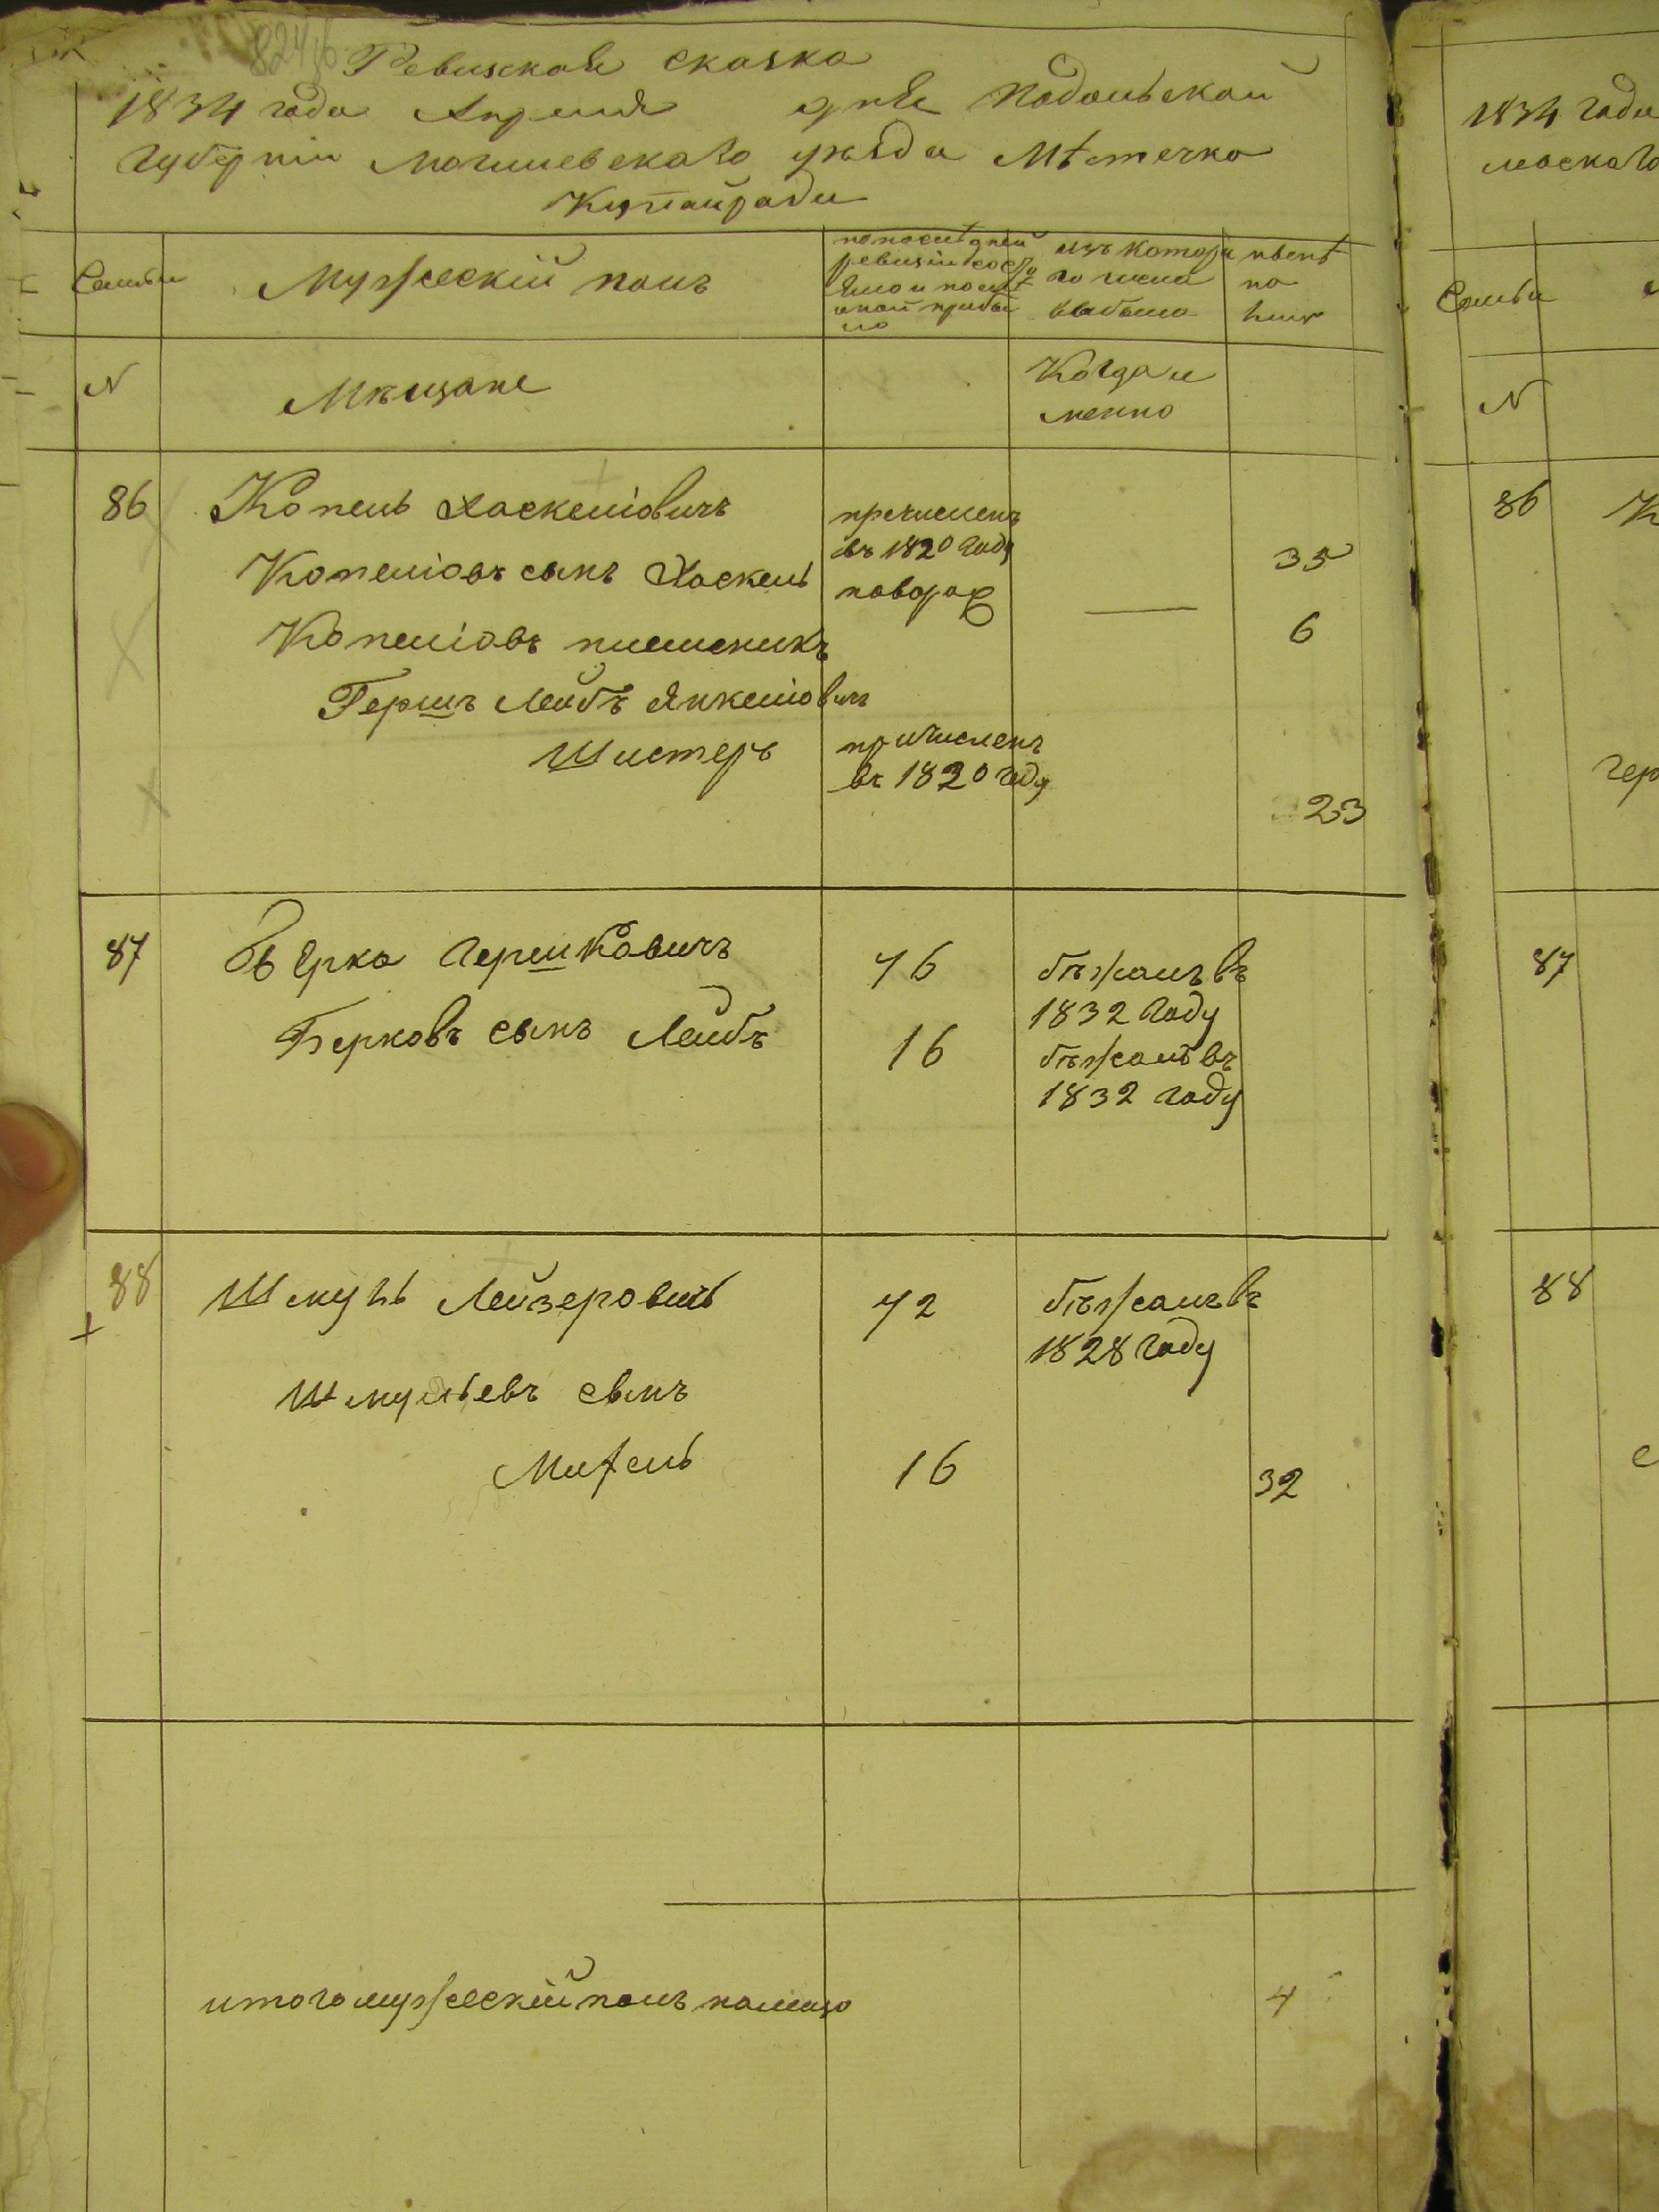 Ревизская сказка
1834 года Апреля дня Подольской
Губерніи Могилевскаго уѣзда Мѣстечка
Копайграда
Семьи
Мужескій полъ
по послѣдней ревизіи состояло и послѣ оной прибыло
изъ которого числа выбыло
нынѣ на лицо
N
Мѣщане
Когда именно
86 Копель Хаскелiовичъ
причисленъ въ 1820 Году
35
Копелiовъ сынъ Хаскель
6
Копелiовъ племеникъ
Гершъ Лейбъ Янкелiовичъ
Шистеръ
причисленъ въ 1820 году
23
87 Берко Гершковичъ 46 бѣжалъ въ 1832 Году
Берковъ сынъ Лейбъ 16 бѣжалъ въ 1832 году
88 Шмуль Лейзеровичъ 42 бѣжалъ въ 1828 Году
Шмулѣевъ сынъ
Михель 16 32
итого мужескій полъ налицо 4
1834 Года
Семьи
N
86 К
Гер
87
88